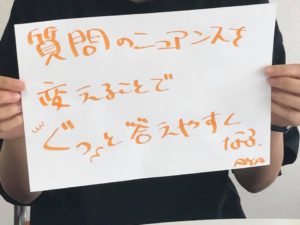 質問のニュアンスを
変えることで
ぐっと答えやすく
なる.